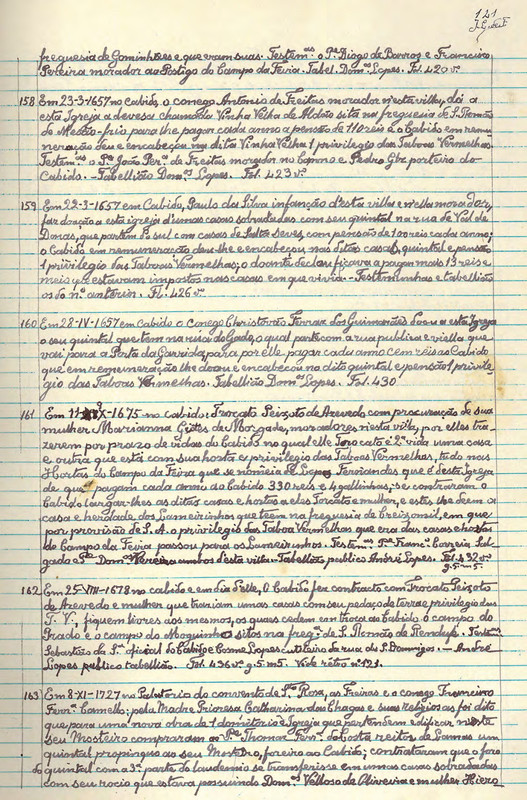 121
freguesia de Gominhães e que eram suas. Testem.as o P.e Diogo de Barros e Francisco
Pereira morador ao Postigo do Campo da Feira. Tabel. Dom.os Lopes. Fol. 420 v.º
158 Em 23-3-1657 no Cabido, o conego Antonio de Freitas morador n'esta villa, dá a
esta Igreja a devesa chamada Vinha Velha de Aldão sita na freguesia de S. Romão
de Mesão-frio para lhe pagar cada anno a pensão de 110 reis e o Cabido em remu
neração deu e encabeçou na dita Vinha Velha 1 privilegio das Taboas Vermelhas.
Testem.as o P.e João Per.a de Freitas morador no e Pedro Glz porteiro do
Cabido. - Tabellião Dom.os Lopes. Fol. 423 v.º
159 Em 22-3-1657 em Cabido, Paulo da Silva infanção d'esta villa e n'ella morador,
faz doação a esta igreja d'umas casas sobradadas com seu quintal na rua de Val de
Donas, que partem do sul com casas de com pensão de 100 reis cada anno;
o Cabido em remuneração deu-lhe e encabeçou nas ditas casas, quintal e pensão
1 privilegio das Taboas Vermelhas; o doante declarou ficava a pagar mais 13 reis e
meio que estavam impostos nas casas em que vivia. - Testeminhas e tabellião
os do n.º anterior. Fl. 426 v.º
160 Em 28-IV-1657 em Cabido o Conego Christovão Ferraz dos Guimarães doou a esta Igreja
o seu quintal que tem na rua do Gado, o qual parte com a rua publica e viella que
vai para a Porta da Garrida, para por elle pagar cada anno cem reis ao Cabido
que em remuneração lhe doou e encabeçou no dito quintal e pensão 1 privile
gio das Taboas Vermelhas. Tabellião Dom.os Lopes. Fol. 430
161 Em 11 X-1675 no Cabido: Trocato Peixoto de Azevedo com procuração de sua
mulher Marianna Gomes de Morgade, moradores nesta villa, por elles tra-
zerem por prazo de vidas do Cabido no qual elle Torcato é 2.ª vida uma casa
e outra que está com sua horta e privilegio das Taboas Vermelhas, tudo nas
Hortas do Campo da Feira que se nomeia de Lopo Fernandes que é desta Igreja
de que pagam cada anno ao Cabido 330 reis e 4 gallinhas, se contrataram o
Cabido largar-lhes as ditas casas e hortas a elles Torcato e mulher, e estes lhe deem a
casa e herdade dos Lameirinhos que teem na freguesia de Creixomil, em que
por provisão de S. A. o privilegio das Taboas Vermelhas que era das casas e hortas
do Campo da Feira passou para os Lameirinhos. Testem.as P.e Franc.º Correia Sal-
gado e P.e Dom.os Pereira ambos desta villa - Tabellião publico André Lopes. Fol. 32 v.º
g. 5 m 5.
162 Em 25-VIII-1678 no Cabido e em dia delle, O Cabido fez contracto com Trocato Peixoto
de Azevedo e mulher que traziam umas casas com seu pedaço de terra e privilegio das
T. V., fiquem livres aos mesmos, os quaes cedem em troca ao Cabido o campo do
Prado e o campo do Moquinho sitos na freg.ª de S. Romão de Rendufe. Testem.as
Sebastião de S.a oficial do Cabido e Cosme Lopes cutileiro da rua de S. Domingos. - André
Lopes publico tabellião. Fol. 136 v.º g. 5 m 5. Vide retro n.º 121.
163 Em 8-XI-1727 no Palratorio do convento de S.ta Rosa, as Freiras e o conego Francisco
Ferr.a Camello; pela Madre Prioresa Catharina das Chagas e suas religiosas foi dito
que para uma nova obra de 1 dormitorio e Igreja que pertendem edificar neste
seu Mosteiro compraram ao P.e Thomaz Ferr.a da Costa reitor de Lamas um
quintal propinquo ao seu Mosteiro, foreiro ao Cabido; contrataram que o foro
do quintal com a 3.ª parte do laudemio se transferisse em umas casas sobradadas
com seu rocio que estava possuindo Dom.os Velloso de Oliveira e mulher Hiero